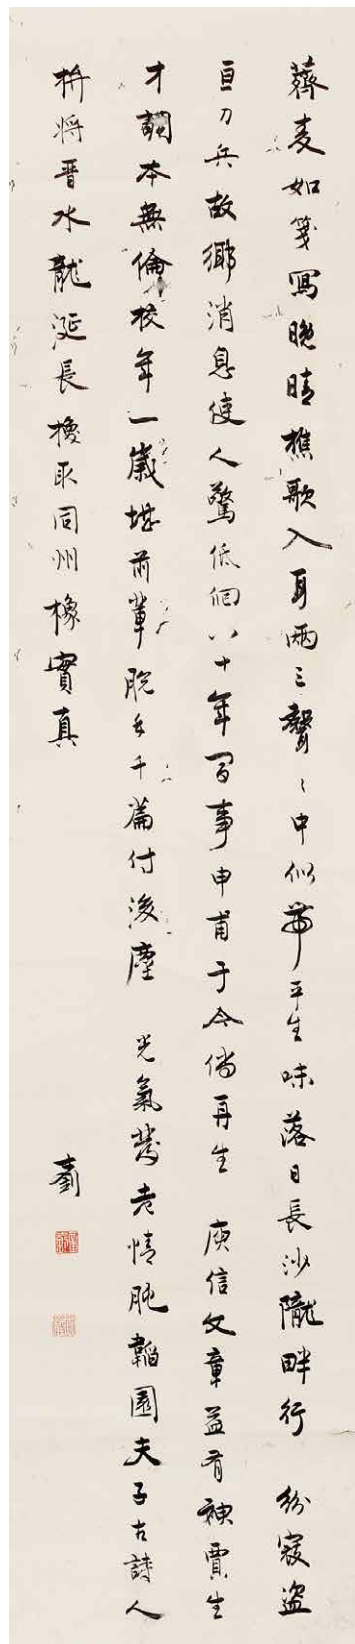 薺麦如箋寫晚晴樵歌入耳兩三聲〻中似帶平生味落日長沙隴畔行 紛寇盜
亘刀兵故鄉消息使人驚低徊八十年間事申甫于今倘再生 庾信文章益有神賈生
才調本無倫校年一歲堪前輩脫手千篇付後塵 光氣發老情肫韜園夫子古詩人
拚將晋水龍涎長換取同州橡實真
劉